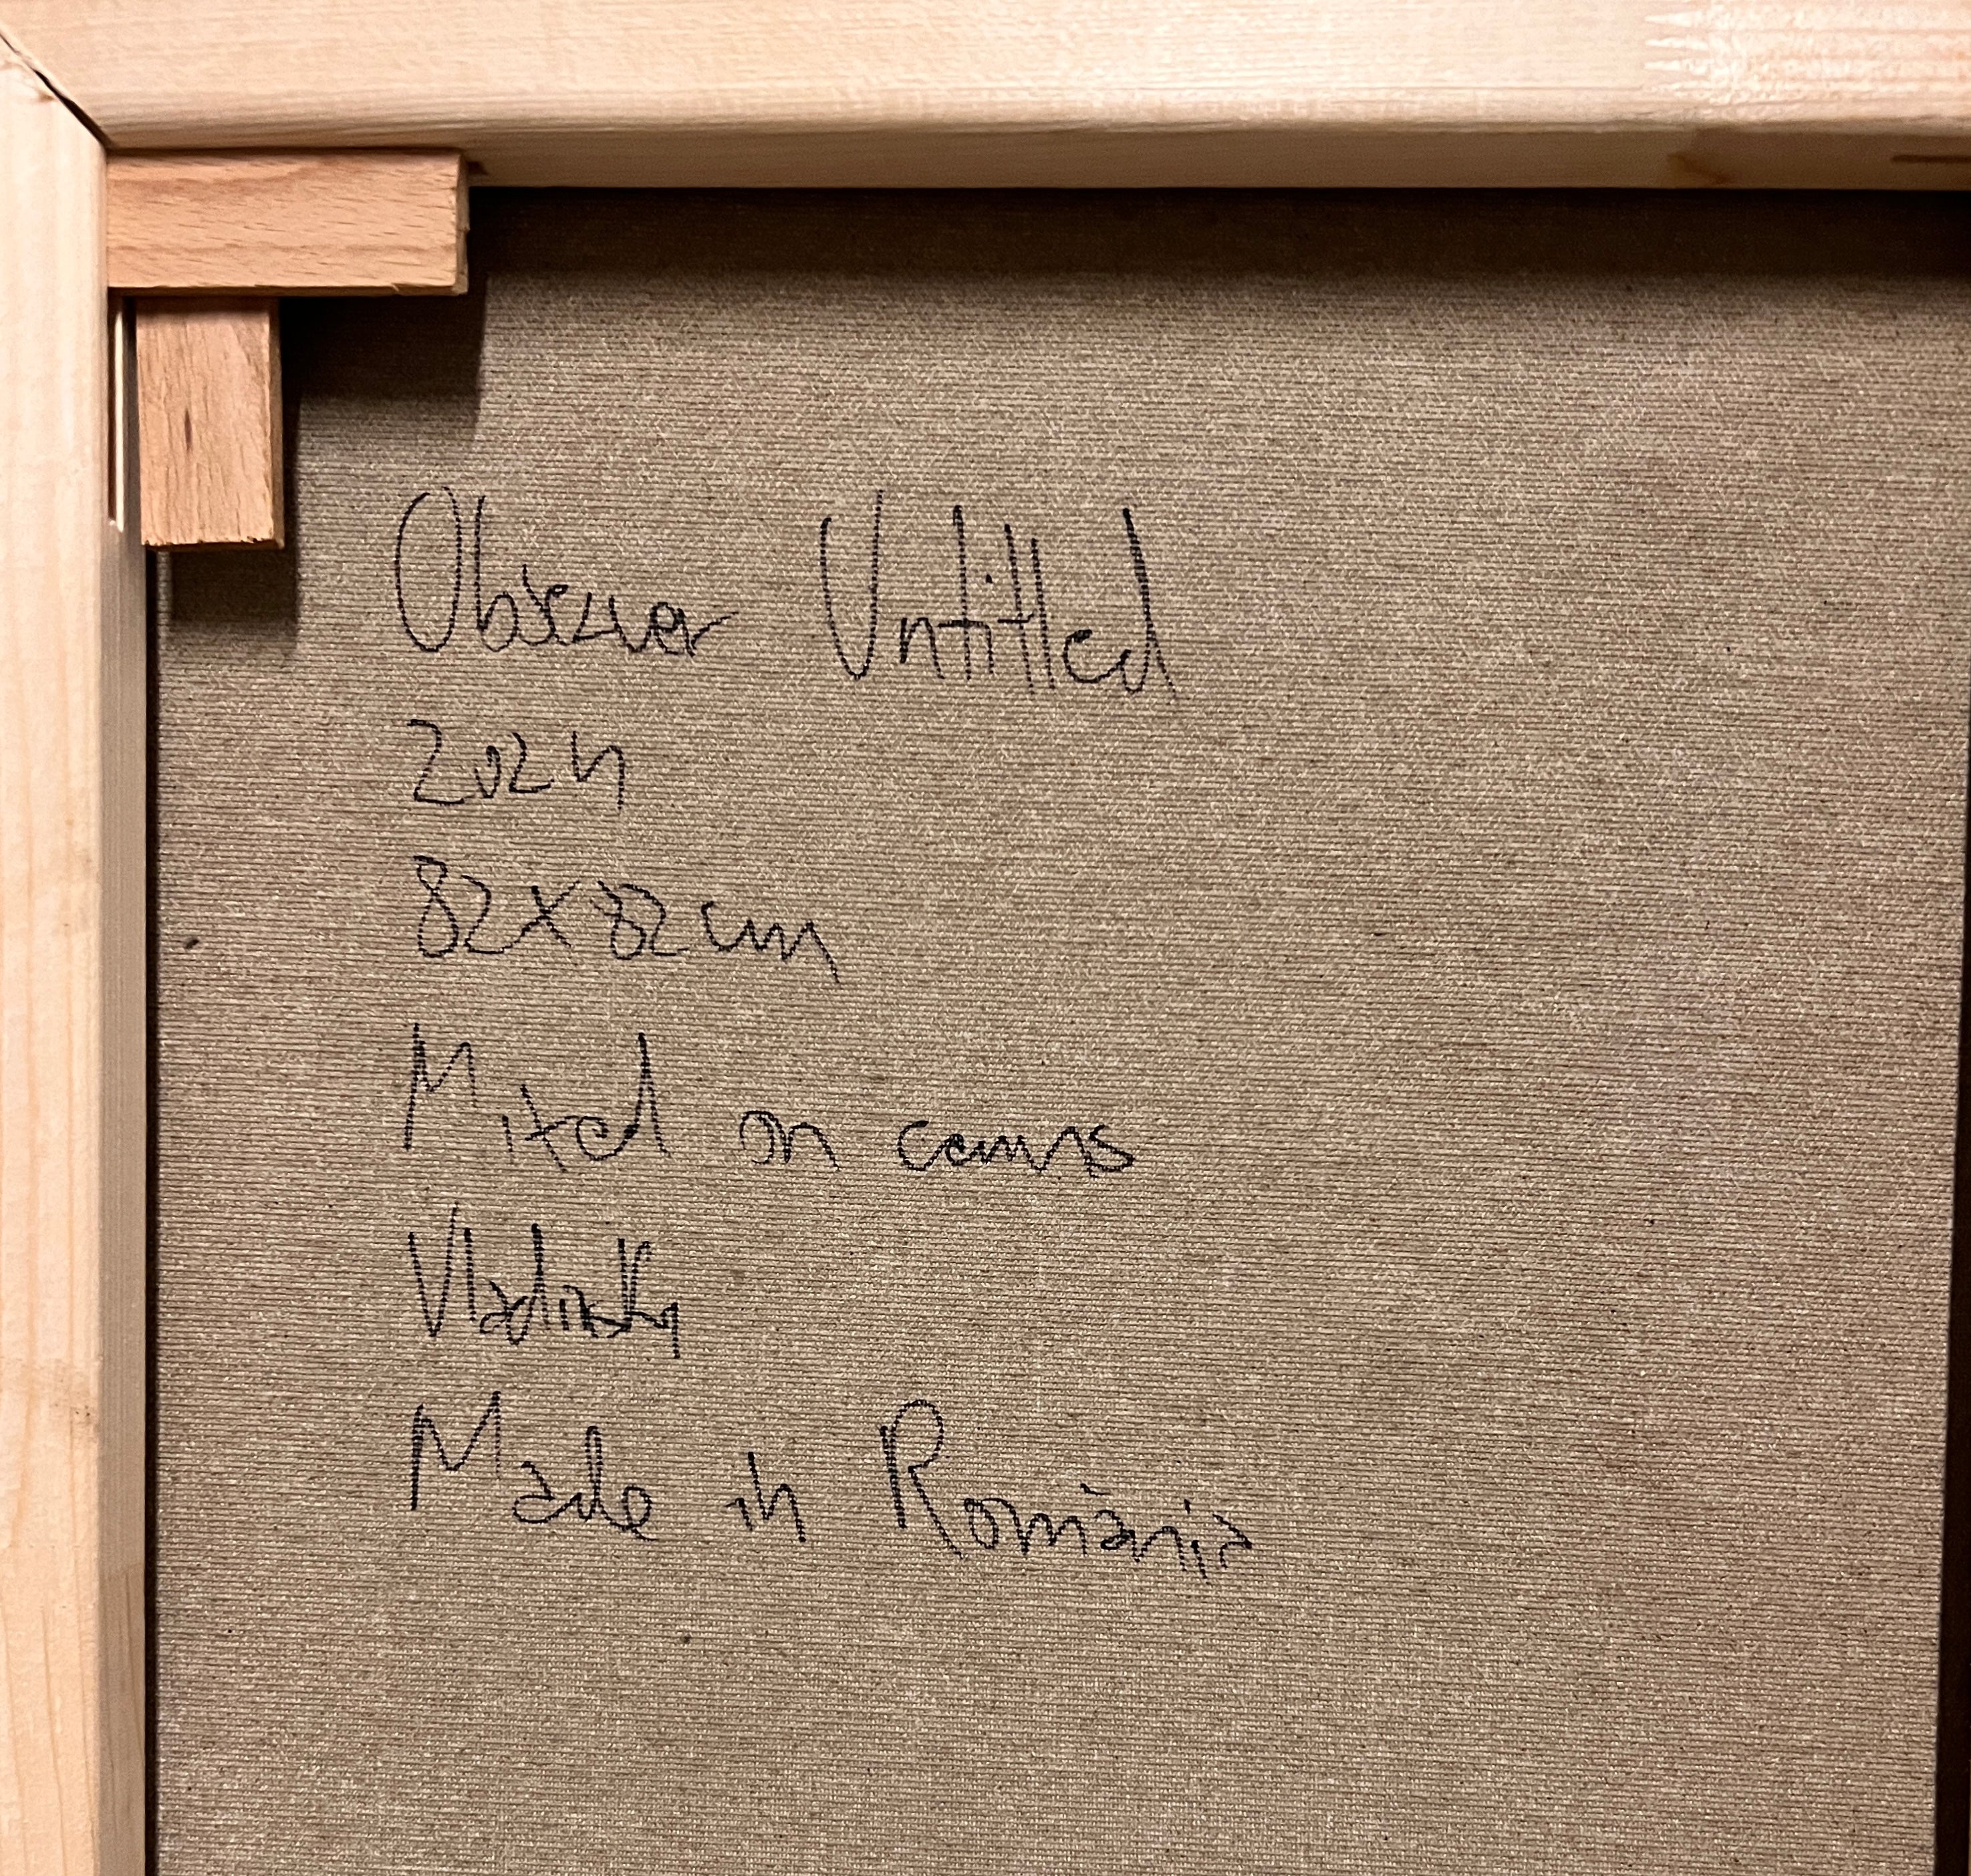 Observer Untitled
2024
82x82cm
Mixed on canvas
Vladinsky
Made in România